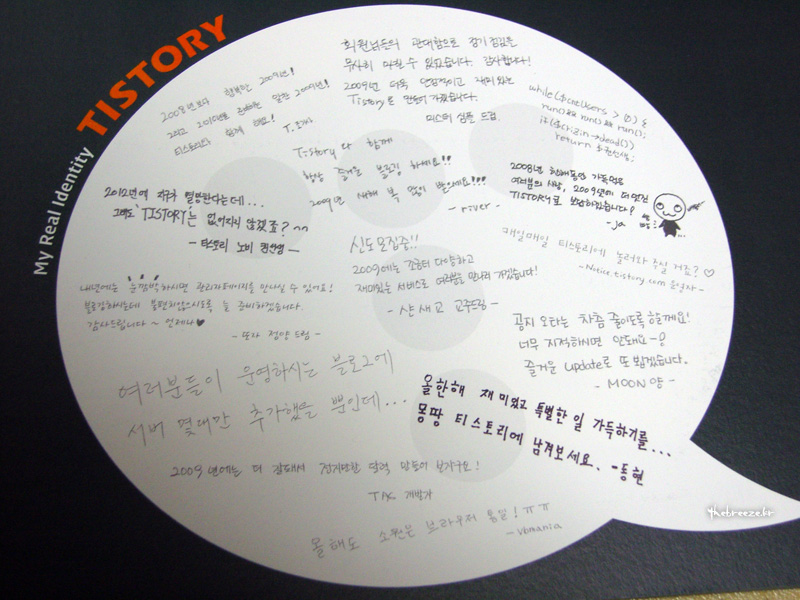 My Real Identity TISTORY
2008년보다 행복한 2009년!
티스토리와 함께 해요!
회원님들의 관대함으로 정기점검을
무사히 마칠 수 있었습니다. 감사합니다!
2009년 더욱 안정적이고 재미있는
Tistory로 만들어 가겠습니다.
미스터 심플 드림.
while($cnt(Users > 0) {
run() && run() && run();
return $환생;
Tistory와 함께
항상 즐거운 블로깅 하세요!!
2009년 새해 복 많이 받으세요!!!
- river -
2008년 한해동안 가득 메운
여러분의 세상, 2009년에 더 멋진
TISTORY로 보답하겠습니다!
- ja
2012년에 지구가 멸망한다는데...
그래도 TISTORY는 없어지지 않겠죠? ^^
- 티스토리 노비 권산영 -
매일매일 티스토리에 놀러와 주실 거죠? ♡
- Notice.tistory.com 운영자 -
신도모집중!!
2009에는 조금더 다양하고
재미있는 서비스로 여러분을 만나러 가겠습니다!
- 샨새교 교주드림 -
내년에는 눈깜박하시면 관리자페이지를 만나실 수 있어요!
블로깅하시는데 불편하지않으시도록 늘 준비하겠습니다.
감사드립니다 ~ 언제나♥
- 또자 정양 드림 -
공지 오타는 차츰 줄이도록 할께요!
너무 지적하시면 안돼요
즐거운 update로 또 뵙겠습니다.
- MOON양 -
여러분들이 운영하시는 블로그에
서버 몇대만 추가했을 뿐인데...
올한해 재미있고 특별한 일 가득하기를...
몽땅 티스토리에 남겨보세요. - 동현
2009년에는 더 잘해서 건지만한 달력 만들어 보자구요!
TAC 개발자
올해도 소원은 브라우저 통일! ㅠㅠ
- vbmania
thebreeze.kr